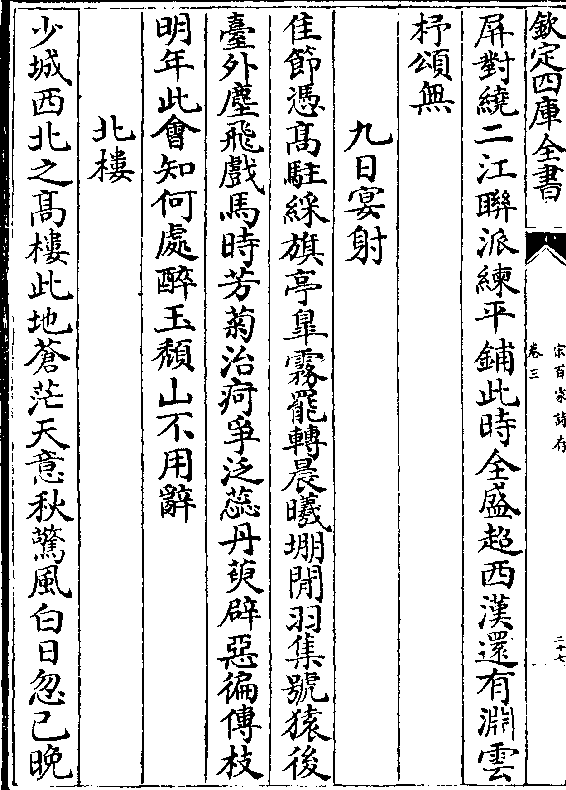 欽定四庫全書
宋百家詩存
卷三
二十七
屏對繞二江聯派練平鋪此時全盛超西漢還有淵雲
杼頌無
九日宴射
佳節憑髙駐綵旗亭臯霧罷轉晨曦堋閒羽集號猿後
臺外塵飛戲馬時芳菊治疴爭泛蕊丹萸辟惡徧傳枝
明年此會知何處醉玉頽山不用辭
北樓
少城西北之髙樓此地蒼茫天意秋驚風白日忽已晚